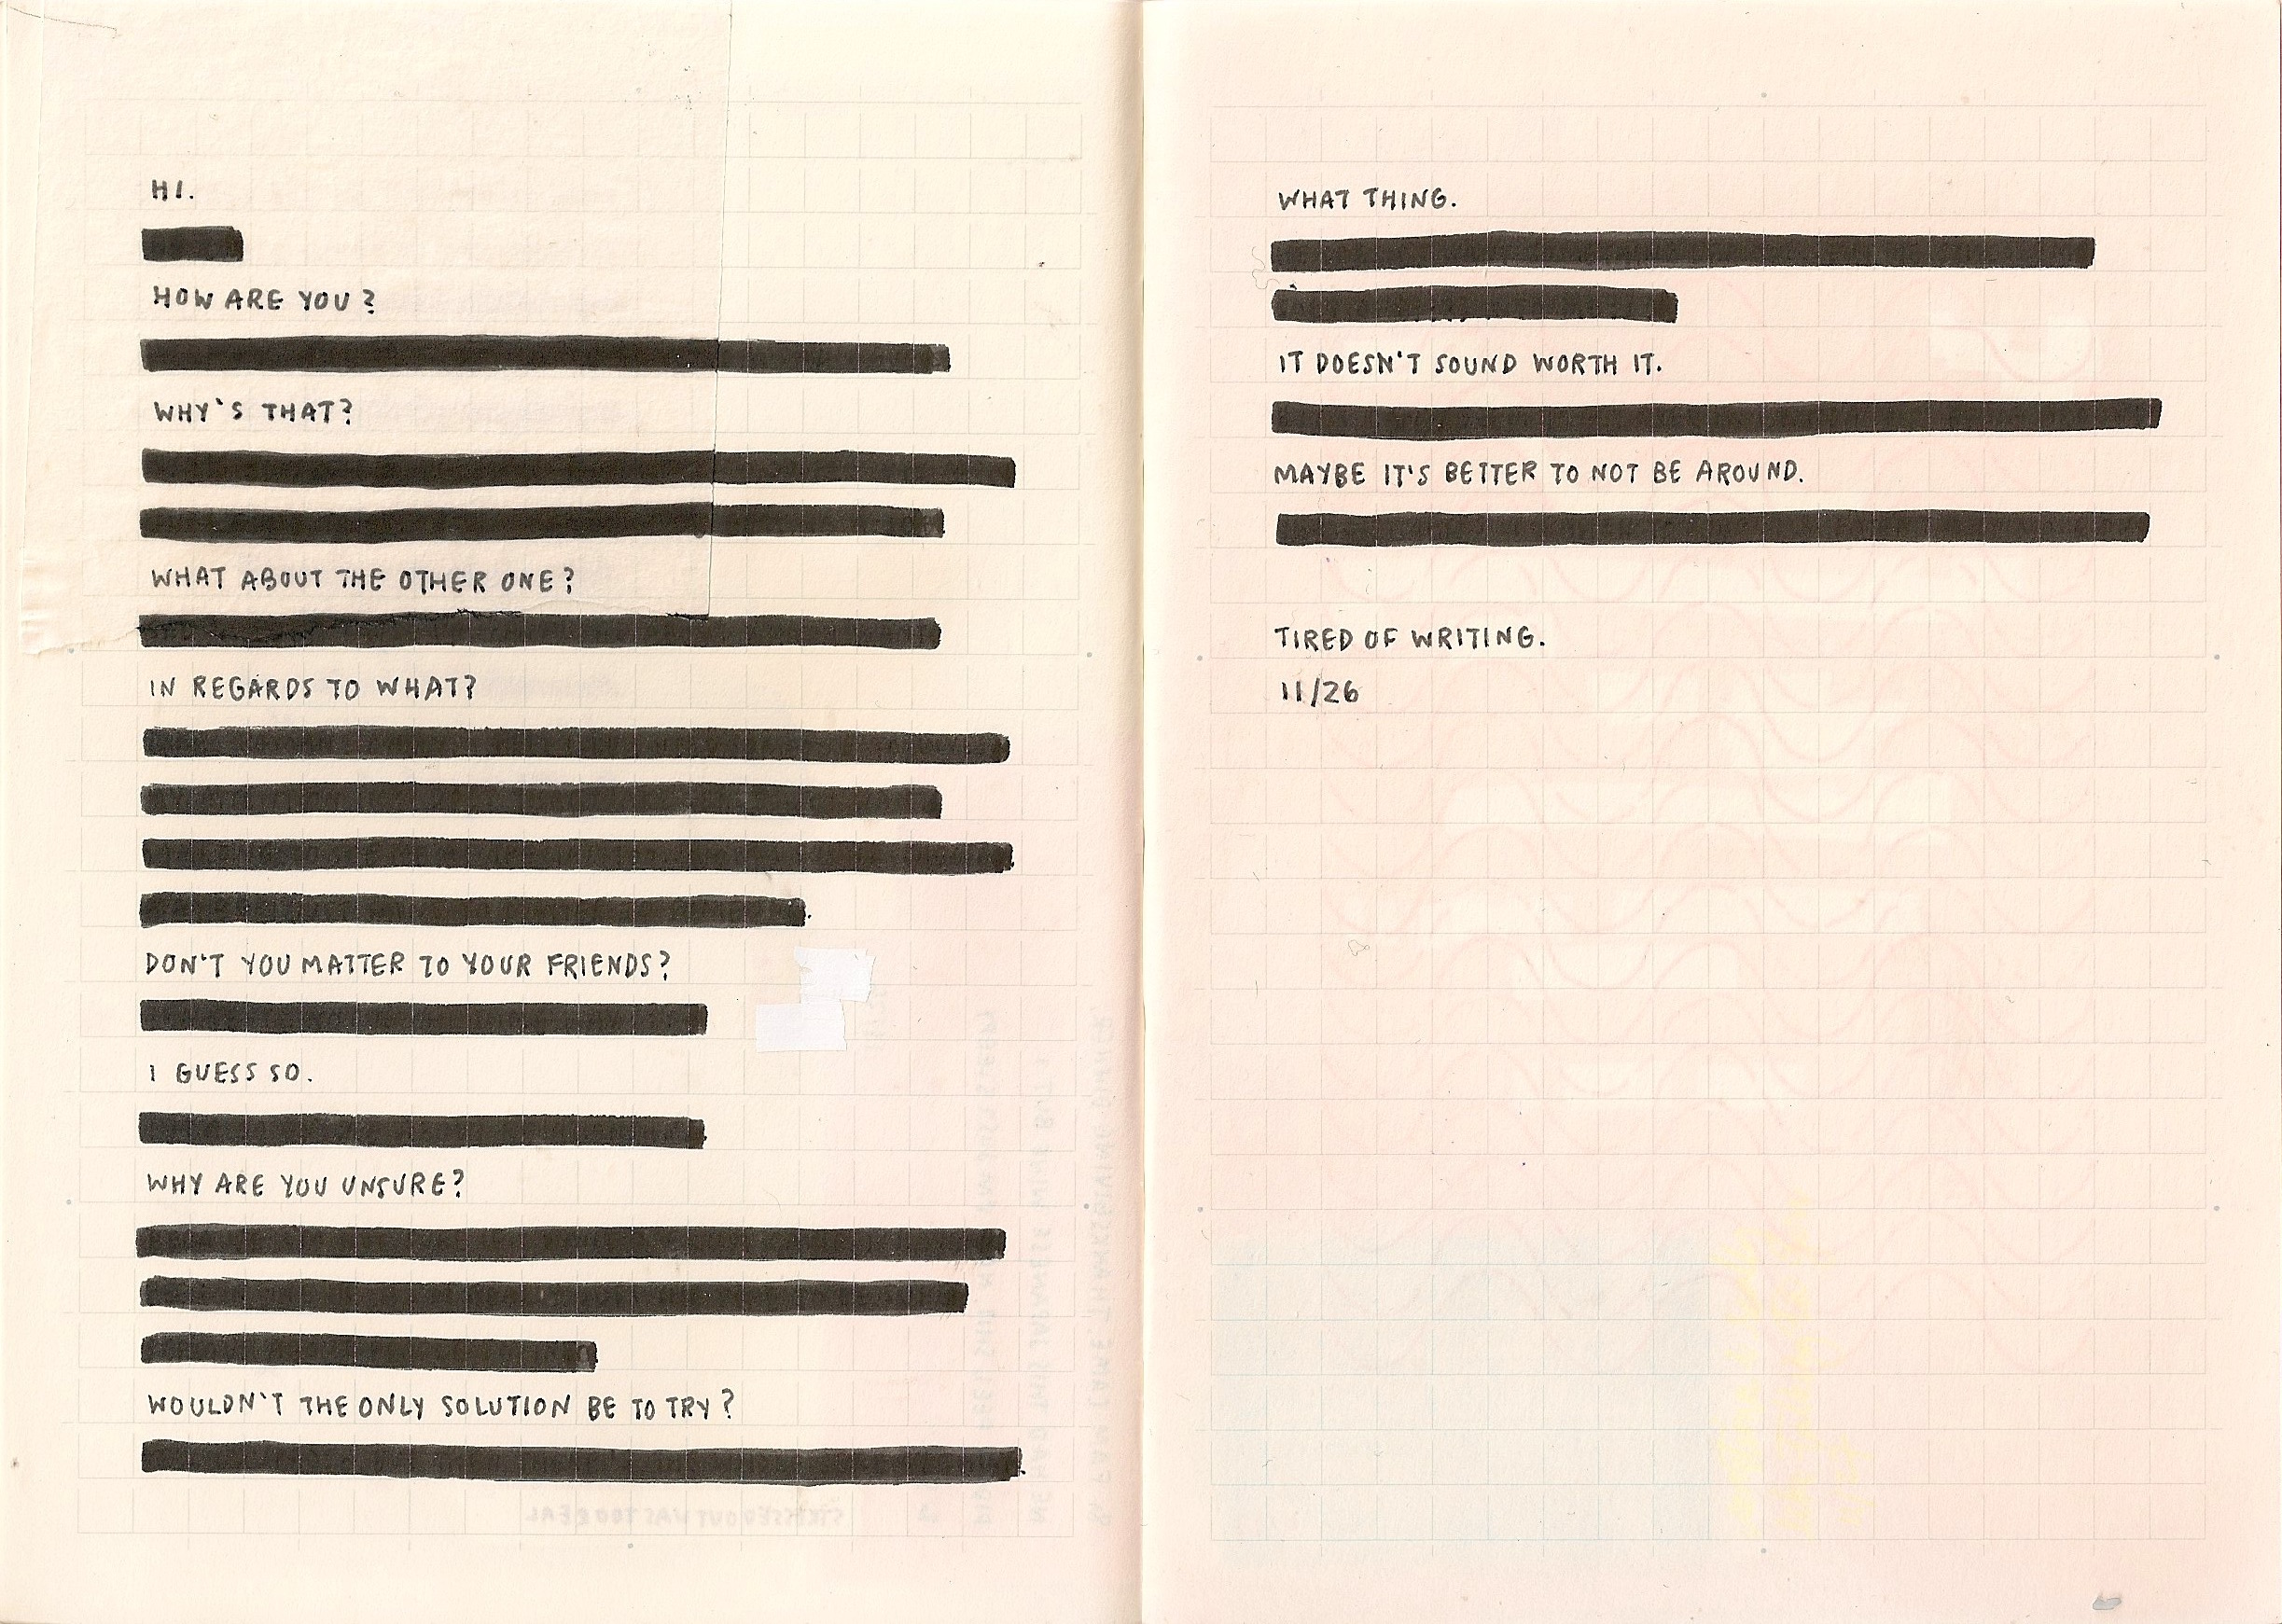 HI.
HOW ARE YOU?
WHY'S THAT?
WHAT ABOUT THE OTHER ONE?
IN REGARDS TO WHAT?
DON'T YOU MATTER TO YOUR FRIENDS?
I GUESS SO.
WHY ARE YOU UNSURE?
WOULDN'T THE ONLY SOLUTION BE TO TRY?
WHAT THING.
IT DOESN'T SOUND WORTH IT.
MAYBE IT'S BETTER TO NOT BE AROUND.
TIRED OF WRITING.
11/26